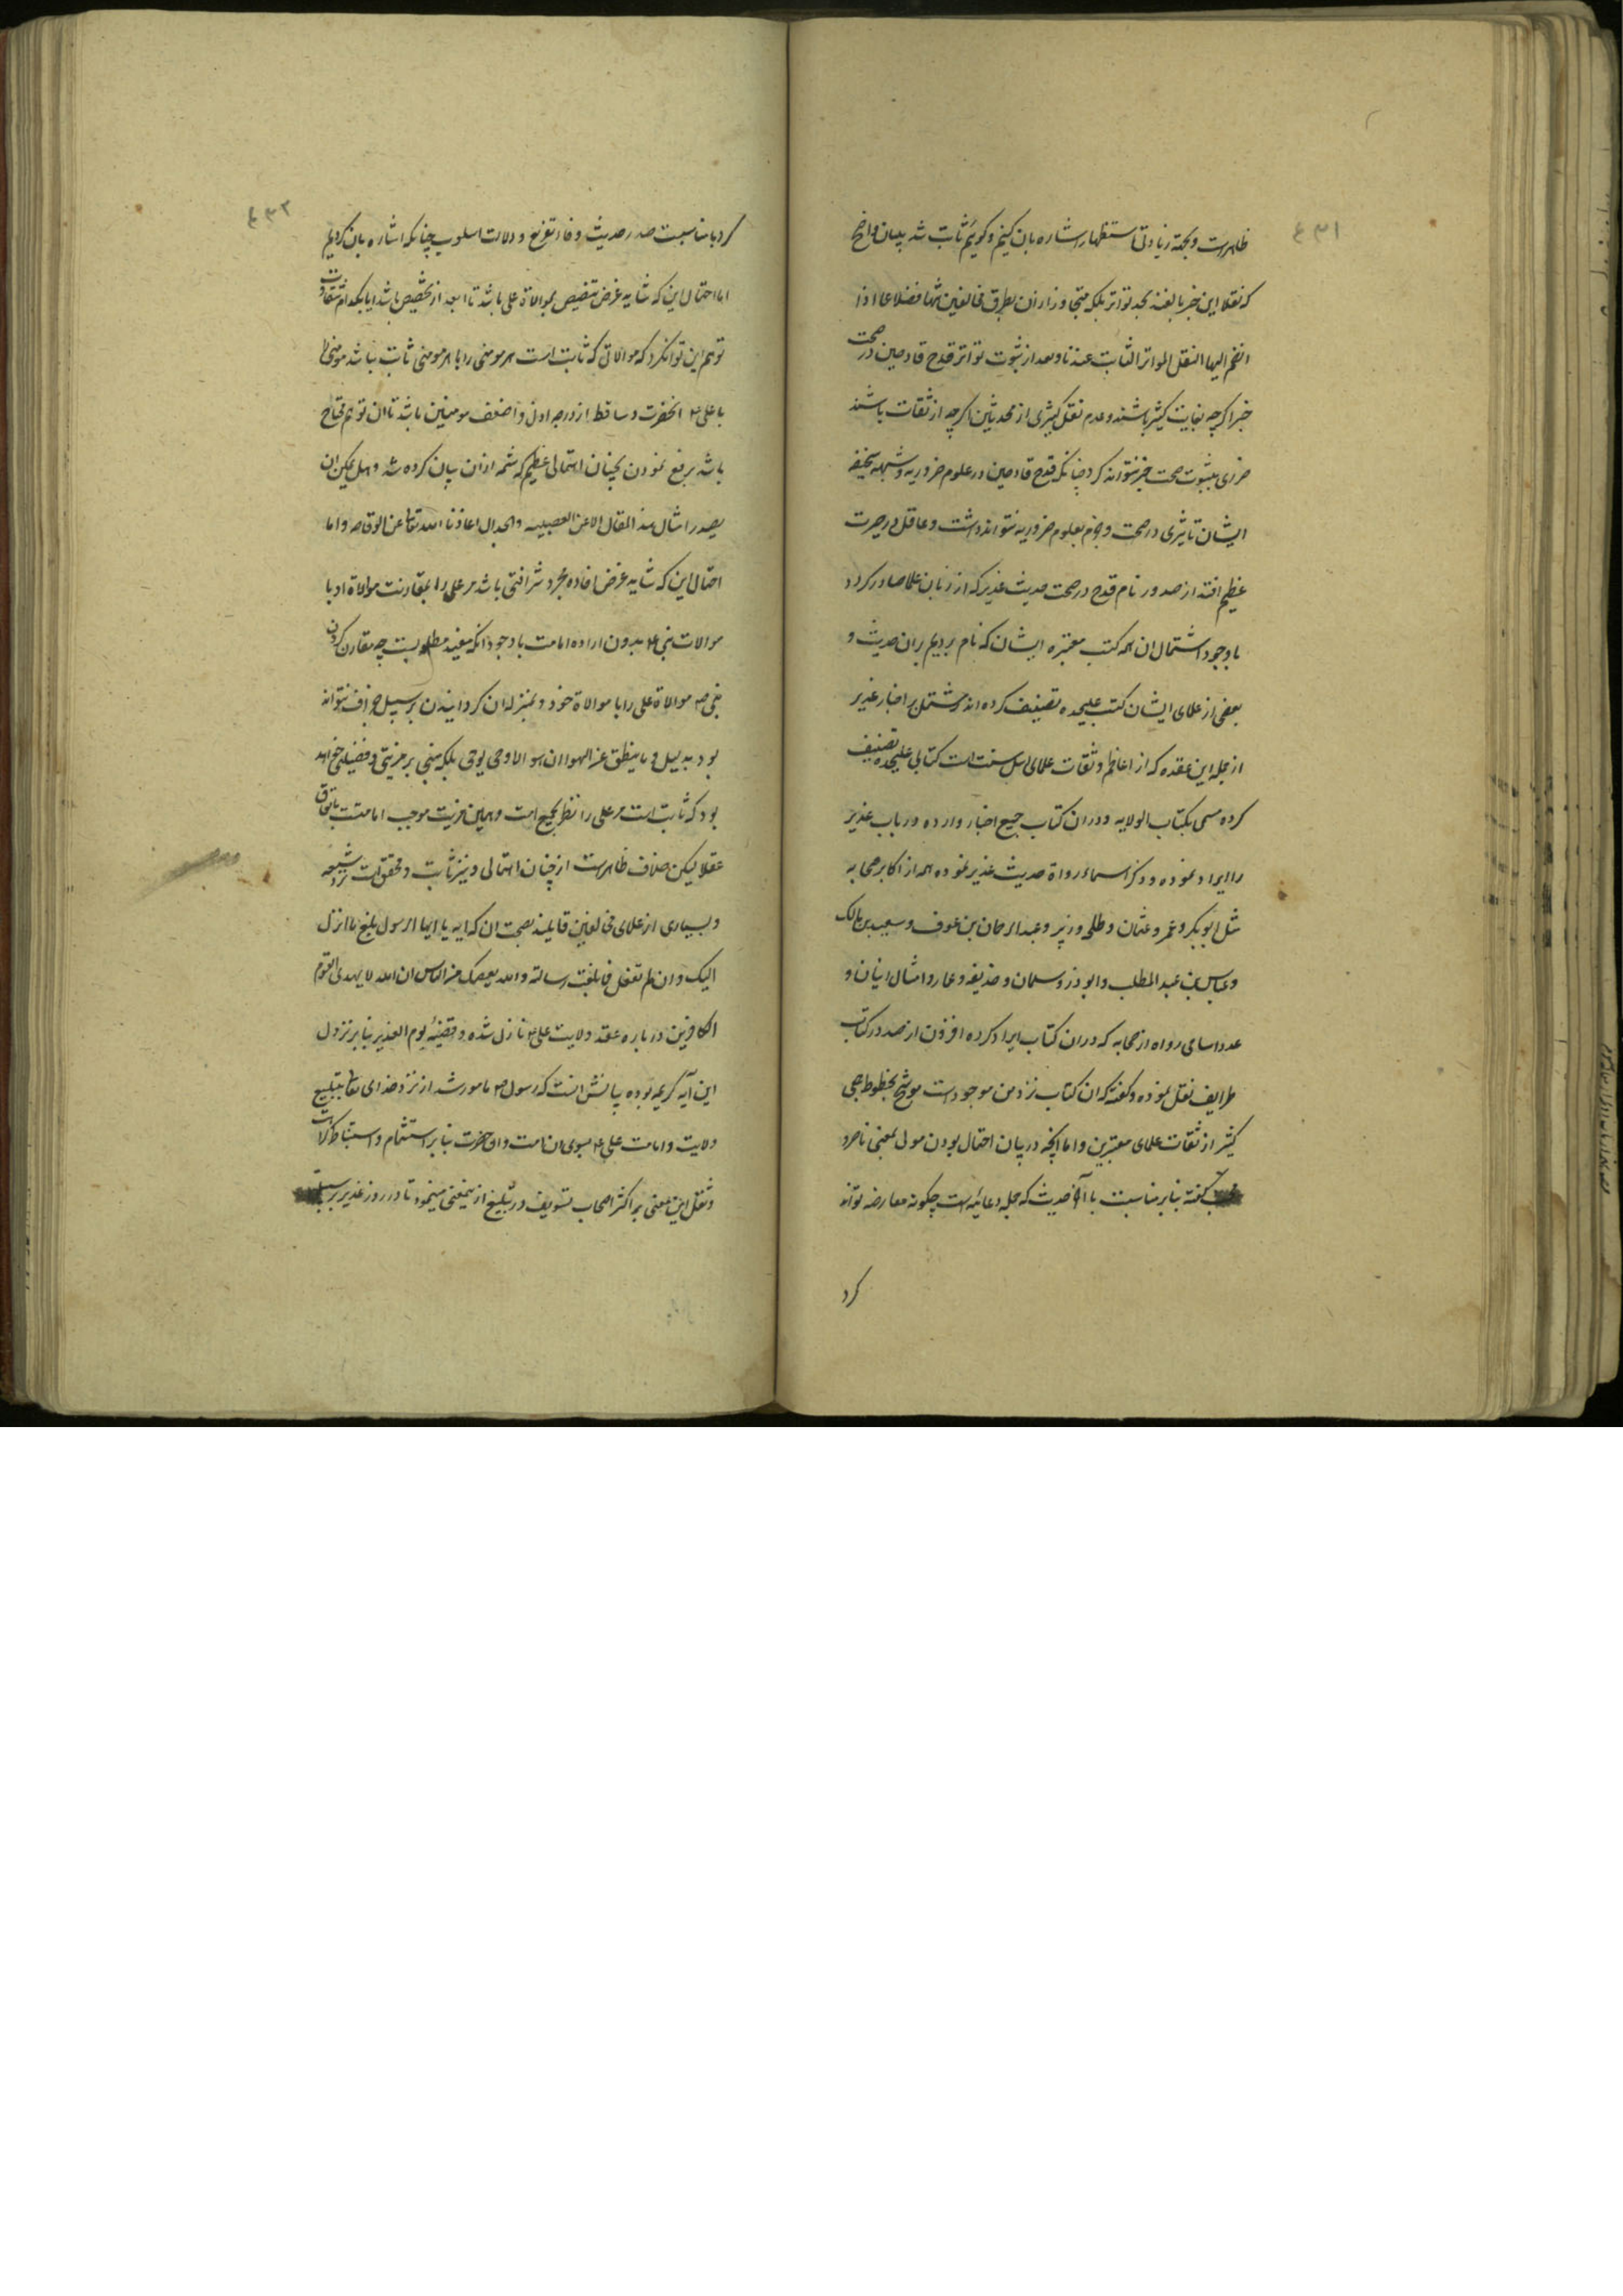 ٤٣١
ظاهرست و بجهة زیادتی استظهار اشاره بان کنیم و کوئیم ثابت شد ببیان واضح
که نقلا این خبر بالغند بحد تواتر بلکه متجاوز از ان بطرق مخالفین تنها فضلا عما اذا
انضم الیها النقل المواتر الثابت عندنا و بعد از ثبوت تواتر قدح قادحین در صحت
خبر اکرچه بغایت کثیر باشند و عدم نقل کثیری از محدثین اکرچه از ثقات باشند
ضرری بثبوت صحت خبر نتواند کرد چنانکه قدح قادحین در علوم ضروریه و شبهه سخیفه
ایشان تاثیری در صحت و جزم بعلوم ضروریه نتواند داشت و عاقل در حیرت
عظیم افتد از صدور نام قدح در صحت حدیث غدیر که از زبان علما صادر کردد
با وجود اشتمال ان همه کتب معتبره ایشان که نام بردیم بران حدیث و
بعضی از علمای ایشان کتب علیحده تصنیف کرده اند مشتمل بر اخبار غدیر
از جمله ابن عقده که از اعاظم و ثقات علمای اهل سنت است کتابی علیحده تصنیف
کرده مسمی بکتاب الولایه و در ان کتاب جمیع اخبار وارده در باب غدیر
را ایراد نموده و ذکر اسماء رواة حدیث غدیر نموده همه از اکابر صحابه
مثل ابوبکر و عمر و عثمان و طلحه و زبیر و عبد الرحمان بن عوف و سعید بن مالک
و عباس بن عبد المطلب و ابوذر و سلمان و حذیفه و عمار و امثال اینان و
عدد اسامی رواه از صحابه که در ان کتاب ایراد کرده افزون از صد در کتاب
طرایف نقل نموده و کفته که ان کتاب نزد من موجود است موشح بخطوط جمعی
کثیر از ثقات علمای معتبرین و اما آنچه در بیان احتمال بودن مولی بمعنی ناصر و
محب کفته بنابر مناسبت با آخر حدیث که جمله دعائیه است چکونه معارضه تواند
کرد
٤٣٢
کرد با مناسبت صدر حدیث و فاء تفریع و دلالت اسلوب چنانکه اشاره بان کردیم
اما احتمال این که شاید غرض تنصیص بموالاة علی باشد تا ابعد از تخصیص باشد ایا بکدام شقاوت
توهم این توان کرد که موالاتی که ثابت است هر مومنی را با هر مومنی ثابت نباشد مومنی را
با علی ع انحضرت و ساقط از درجه ادنی و اضعف مومنین باشد تا ان توهم محتاج
باشد برفع نمودن بچنان اهتمالی عظیم که شمه از ان بیان کرده شد و هل یمکن ان
یصدر امثال هذا المقال الا عن العصبیه و الجدال اعاذنا الله تعالی عن الوقاحه و اما
احتمال این که شاید غرض افاده مجرد شرافتی باشد مر علی را بمقارنت موالاة او با
موالات نبی ع بدون اراده امامت با وجود انکه مفید مطلوبست چه مقارن کردن
نبی ص موالاة علی را با موالاة خود و بمنزله ان کردانیدن بر سبیل جزاف نتواند
بود بدلیل و ما ینطق عن الهوا ان هو الا وحی یوحی بلکه مبنی بر مزیتی و فضیلتی خواهد
بود که ثابت است مر علی را نظر بجمیع امت و همین مزیت موجب امامتست باتفاق
عقلا لیکن خلاف ظاهرست از چنان اهتمالی و نیز ثابت و محقق است نزد شیعه
و بسیاری از علمای مخالفین قایلند بصحت ان که ایه یا ایها الرسول بلغ ما انزل
الیک و ان لم تفعل فما بلغت رسالته و الله یعصمک من الناس ان الله لا یهدی القوم
الکافرین در باره عقد ولایت علی ع نازل شده و قضیهٔ یوم الغدیر بنابر نزول
این آیه کریمه بوده بیانش انست که رسول ص مامور شد از نزد خدای تعالی بتبلیغ
ولایت و امامت علی ع بسوی امت و ان حضرت بنابر استشمام و استنباط کراهت
و ثقل این معنی بر اکثر اصحاب تسویف در تبلیغ از ینمعنی مینمود تا در روز غدیر بر سبیل